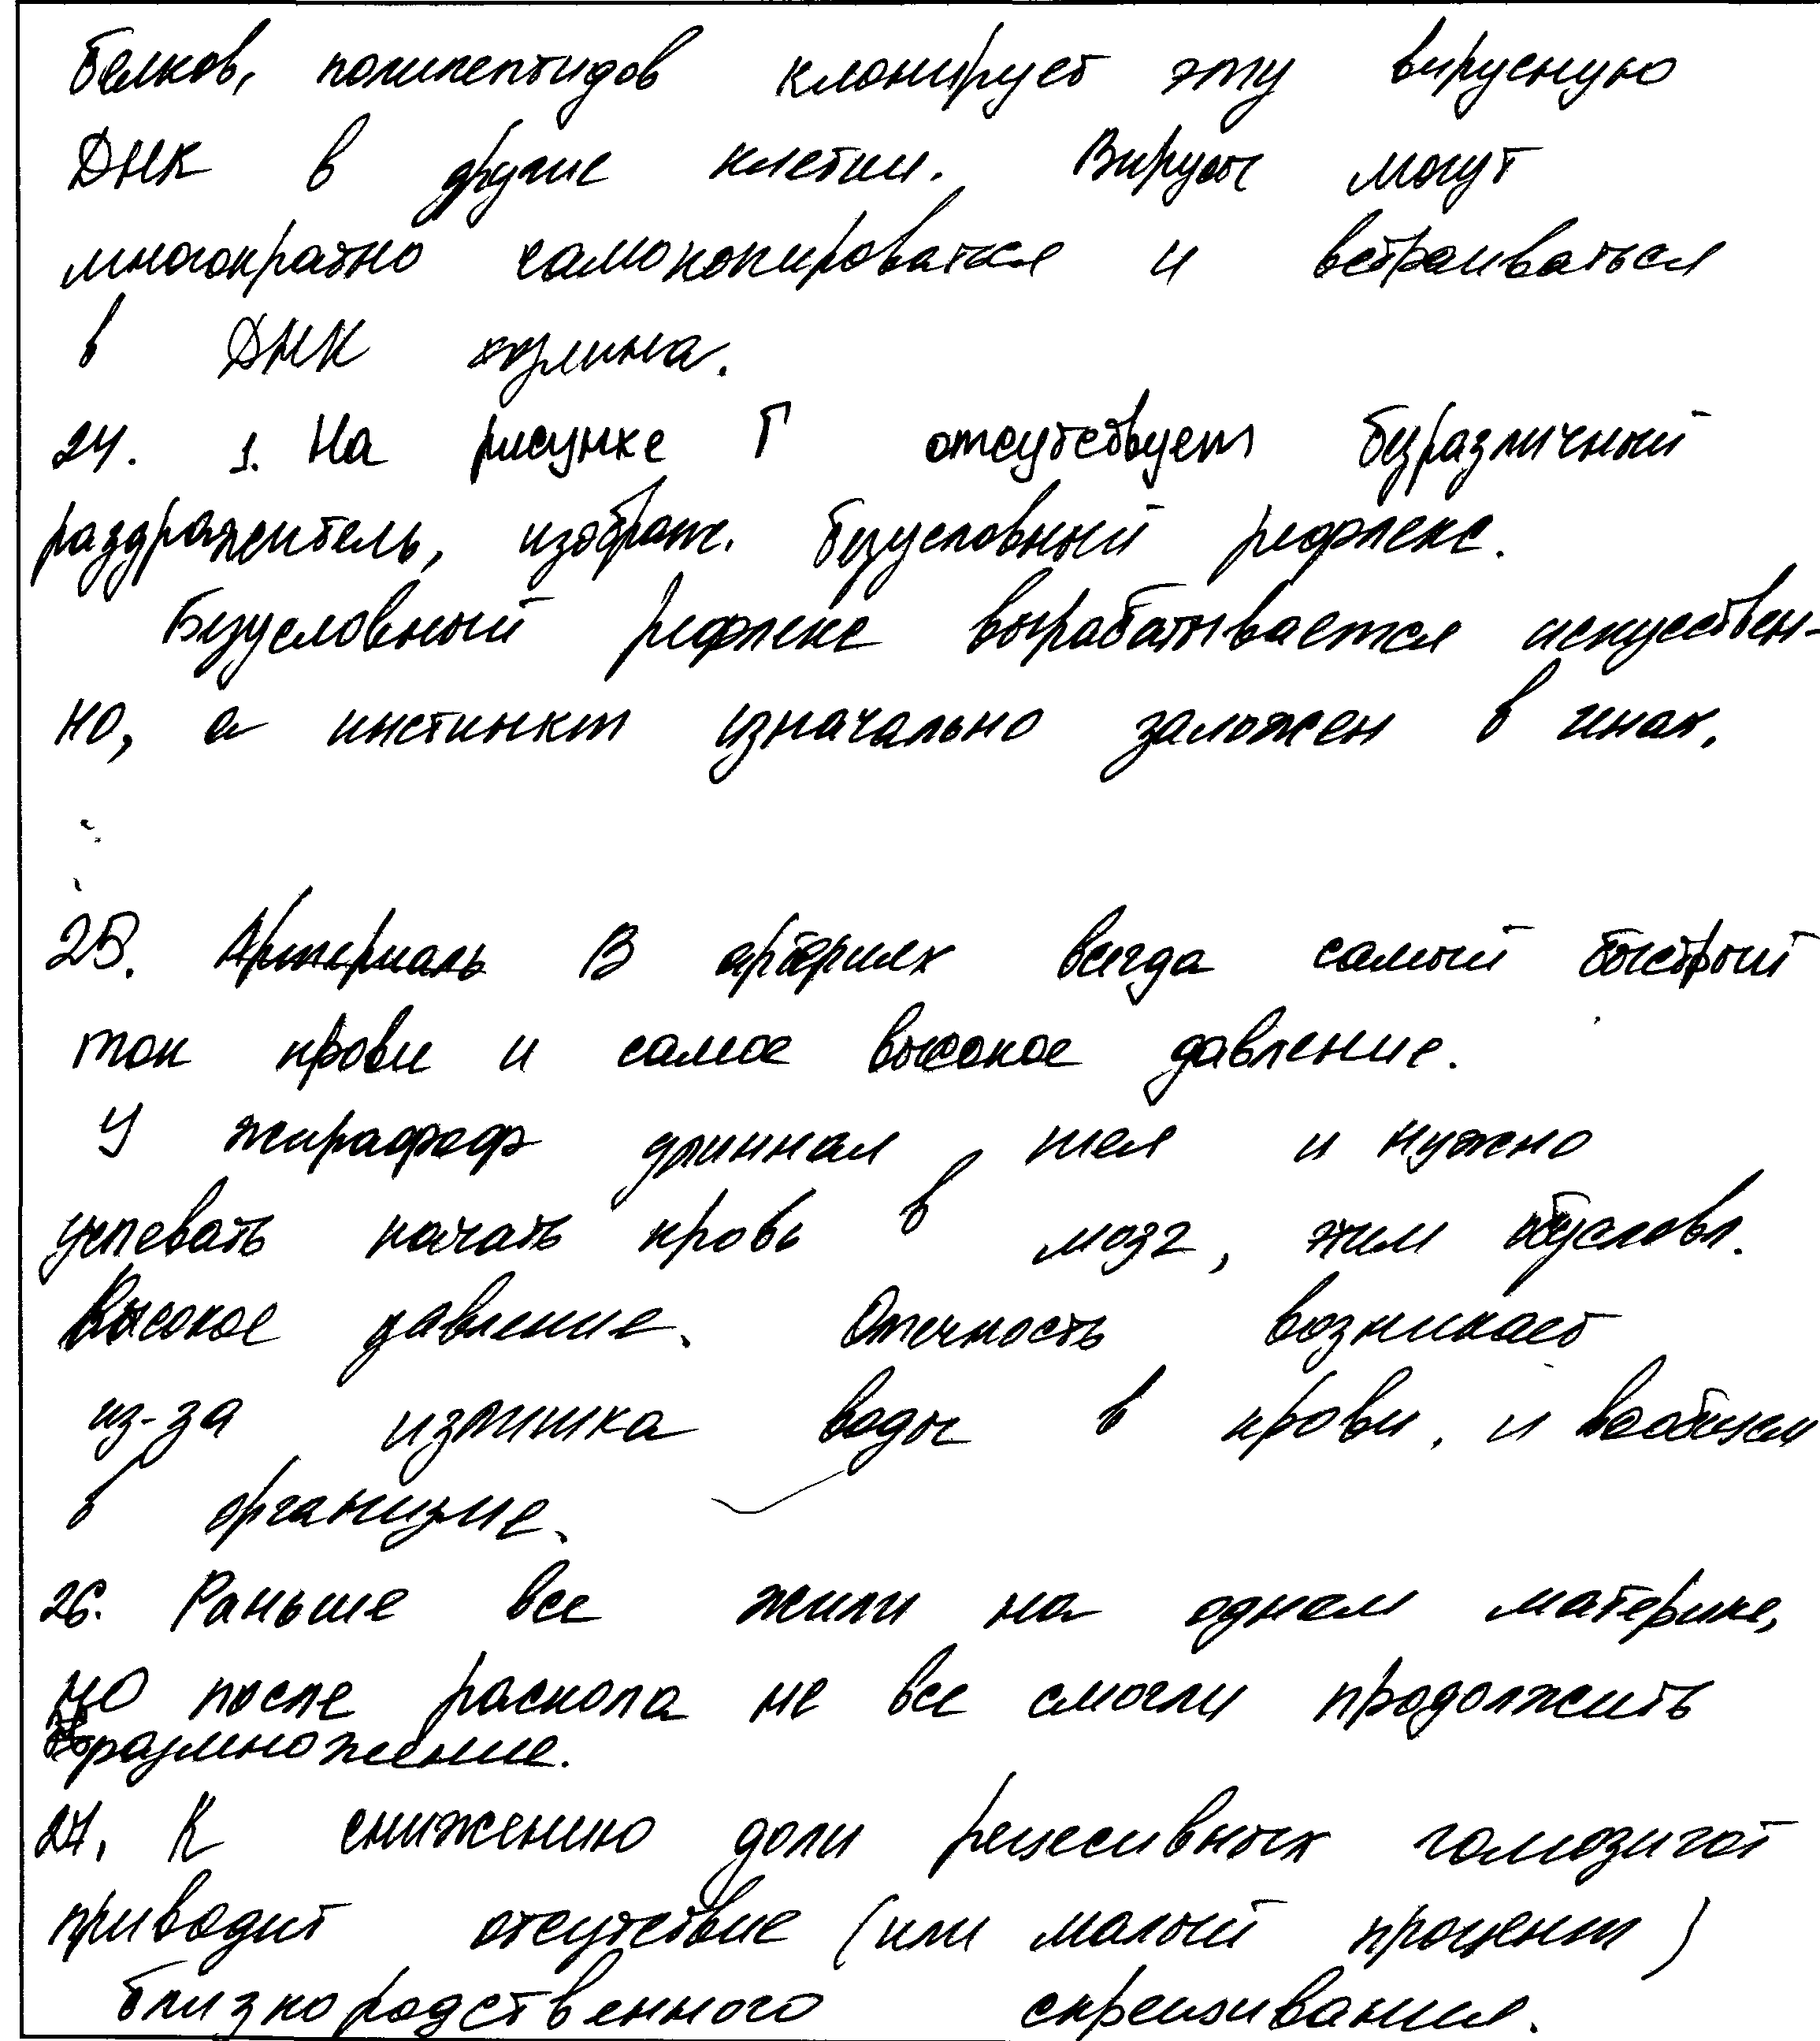 белков, полипептидов клонирует эту вирусную
ДНК в другие клетки. Вирусы могут
многократно самокопироваться и встраиваться
в ДНК хозяина.
24. 1. На рисунке Г отсутствует безразличный
раздражитель, изображ. безусловный рефлекс.
Безусловный рефлекс вырабатывается искусствен-
но, а инстинкт изначально заложен в
25. Артериаль В артериях всегда самый быстрый
ток крови и самое высокое давление.
У жирафоф длинная шея и нужно
успевать качать кровь в мозг, этим обусловл.
Высокое давление. Отечность возникает
из-за излишка воды в крови. и вообщем
в организме.
26. Раньше все жили на одном материке,
но после раскола не все смогли продолжить
размножение.
27. К снижению доли рецесивных гомозигот
приводит отсутствие (или малый процент)
близкородственного скрещивания.